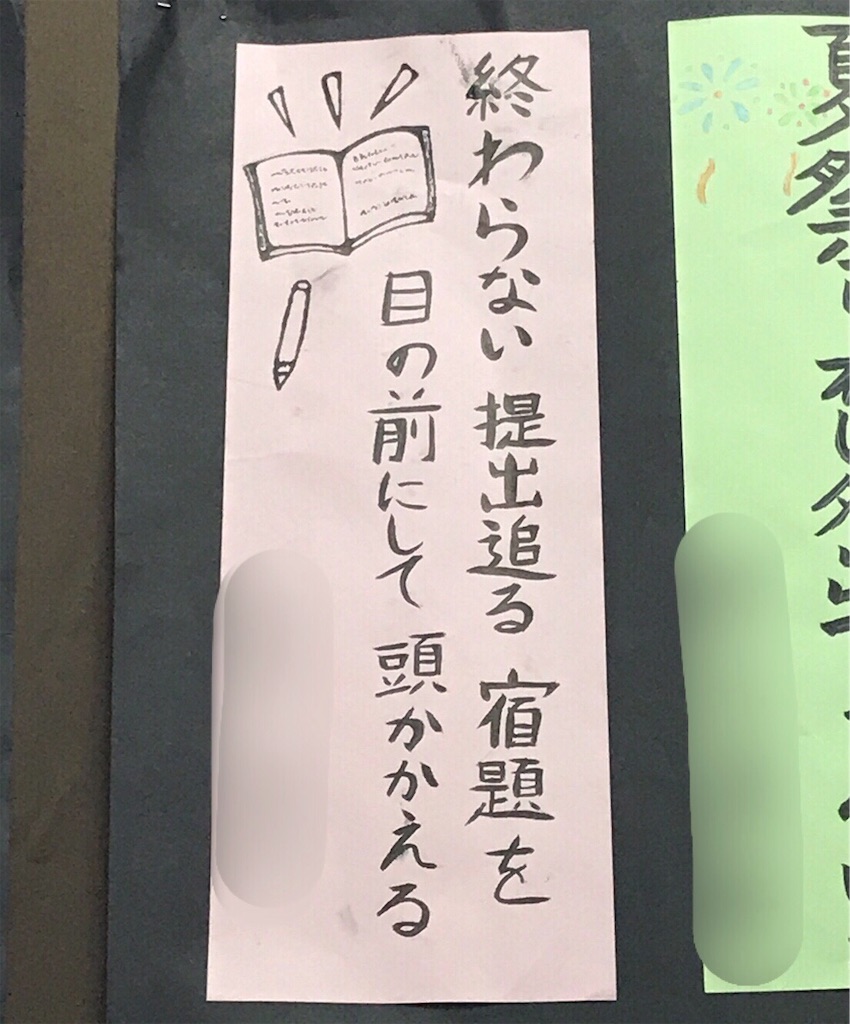 終わらない 提出追る 宿題を
目の前にして 頭かかえる
夏祭り